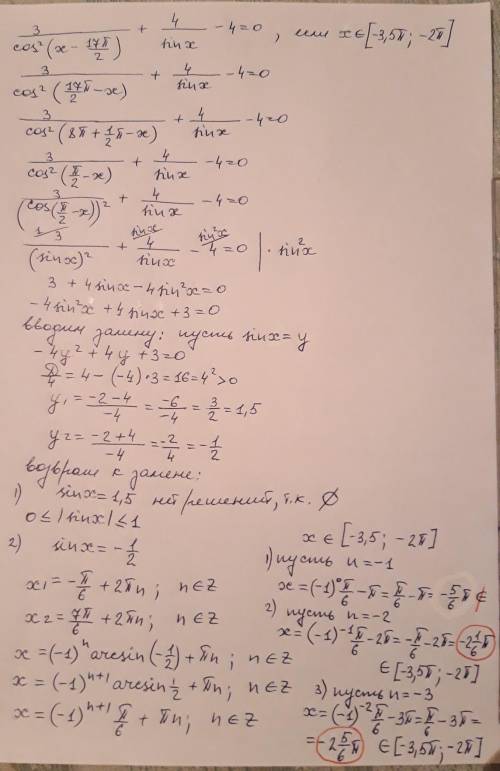 3/cos²(x - 17π/2) + 4/sinx - 4 = 0 , или x∈[-3,5π; -2π]
3/cos²(17π/2 - x) + 4/sinx - 4 = 0
3/cos²(8π + 1/2π - x) + 4/sinx - 4 = 0
3/cos²(π/2 - x) + 4/sinx - 4 = 0
3/(cos(π/2 - x))² + 4/sinx - 4 = 0
1/ 3/(sinx)² + sinx/ 4/sinx - sin²x/ 4 = 0 | · sin²x
3 + 4sinx - 4sin²x = 0
-4sin²x + 4sinx + 3 = 0
вводим замену: пусть sinx = y
-4y² + 4y + 3 = 0
D/4 = 4 - (-4)·3 = 16 = 4² > 0
y₁ = (-2-4)/-4 = -6/-4 = 3/2 = 1,5
y₂ = (-2+4)/-4 = -2/4 = -1/2
возвращ к замене:
1) sinx = 1,5 нет решений, т.к. ∅
0 ≤ |sinx| ≤ 1
2) sinx = -1/2
x₁ = -π/6 + 2πn ; n∈Z
x₂ = 7π/6 + 2πn ; n∈Z
x = (-1)ⁿ arcsin(-1/2) + πn ; n∈Z
x = (-1)ⁿ⁺¹ arcsin 1/2 + πn ; n∈Z
x = (-1)ⁿ⁺¹ π/6 + πn ; n∈Z
x∈[-3,5; -2π]
1) пусть n = -1
x = (-1)⁰ π/6 - π = π/6 - π = -5/6π ∉
2) пусть n = -2
x = (-1)⁻¹ π/6 - 2π = -π/6 - 2π = -2 1/6π
∈[-3,5π; -2π]
3) пусть n = -3
x = (-1)⁻² π/6 - 3π = π/6 - 3π =
= -2 5/6π ∈[-3,5π; -2π]